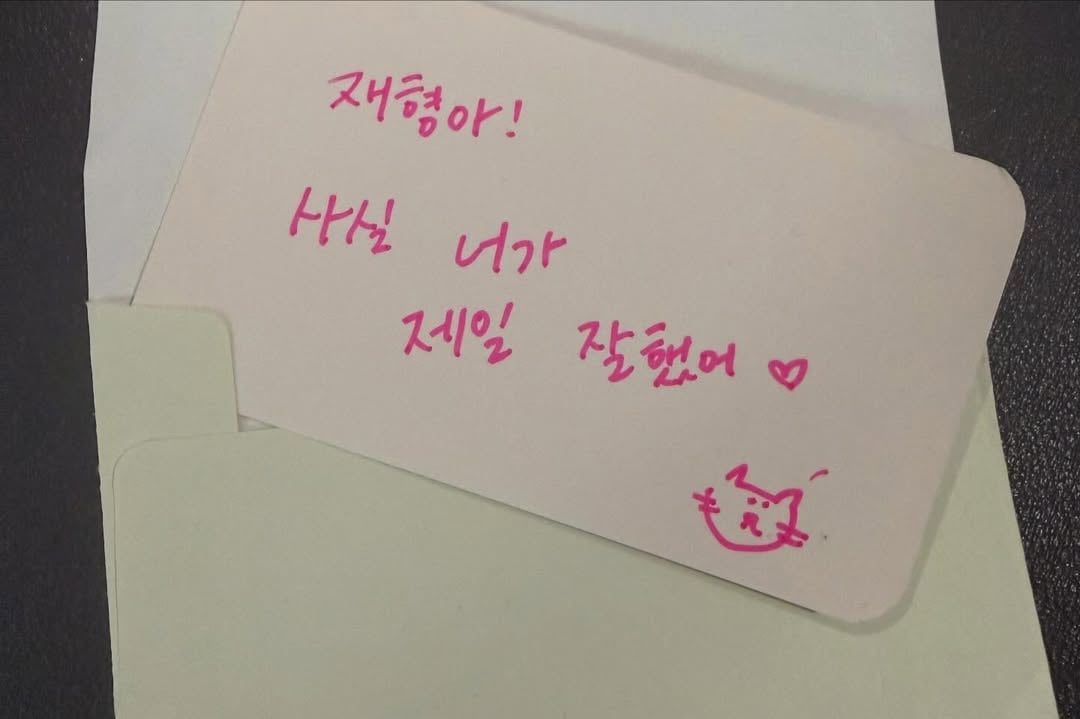 재형아!
사실 너가
제일 잘했어 ♡